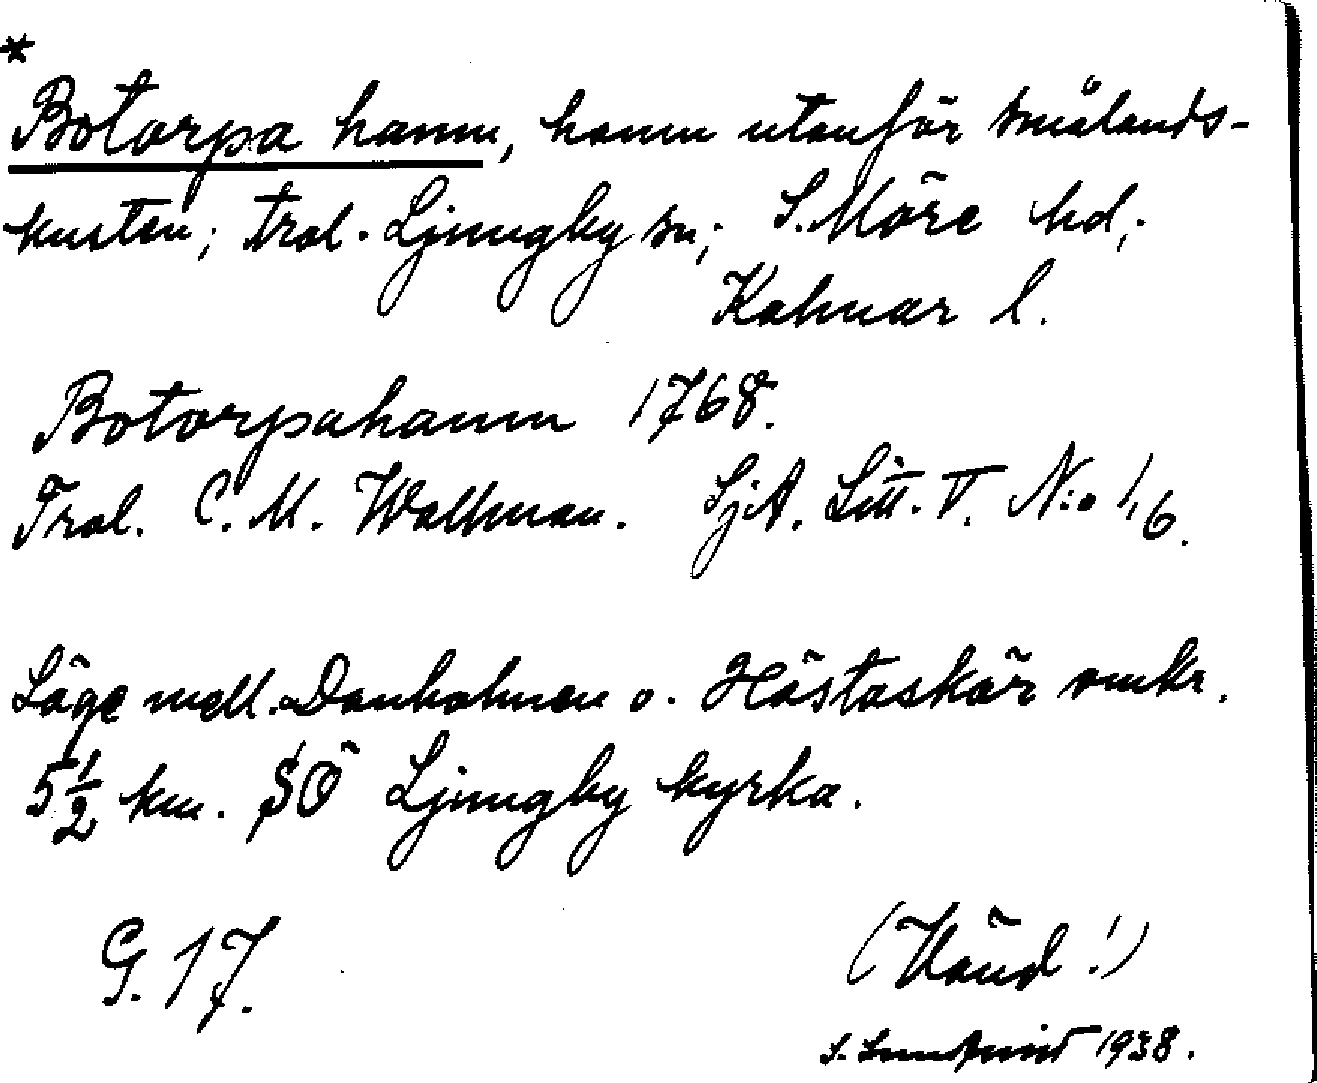 *
Botorpa hamn, hamn utanför Smålands-
kusten; trol. Ljungby sn; S. Möre hd;
Kalmar l.
Botorpahamn 1768.
Trol. C. M. Wallman. SjA. Litt. T. N:o 16.
Läge mell. Danholmen o. Hästaskär omkr.
5 1/2 km. SÖ Ljungby kyrka.
G. 17.
(Vänd!)
S. Lundqvist 1938.